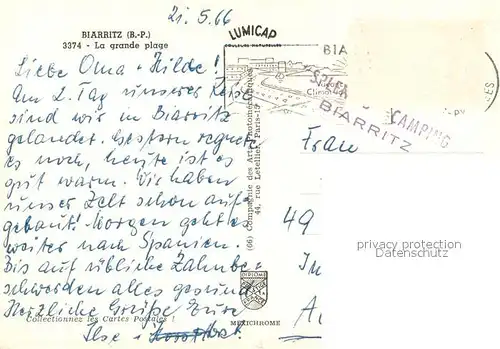 21.5.66
BIARRITZ (B.-P.)
3374 - La grande plage
LUMICAP
COULEURS NATURELLES
BIA
Liebe Oma + Hilde!
Am 2. Tag unserer Reise
sind wir in Biarritz
gelandet. Gestern regnete
es noch, heute ist es
gut warm. Wir haben
unser Zelt schon auf-
gebaut! Morgen geht es
weiter nach Spanien.
Bis auf übliche Zahnbe-
schwerden alles gesund.
Herzliche Grüße Eure
Ilse +
CAMPING
BIARRITZ
Frau
49
(66) Compagnie des Arts Photomécaniques
44, rue Letellier, Paris-15
privacy protection
Datenschutz
DIPLOME
PRESTIGE
FRANCE
Collectionnez les Cartes Postales !
MEXICHROME